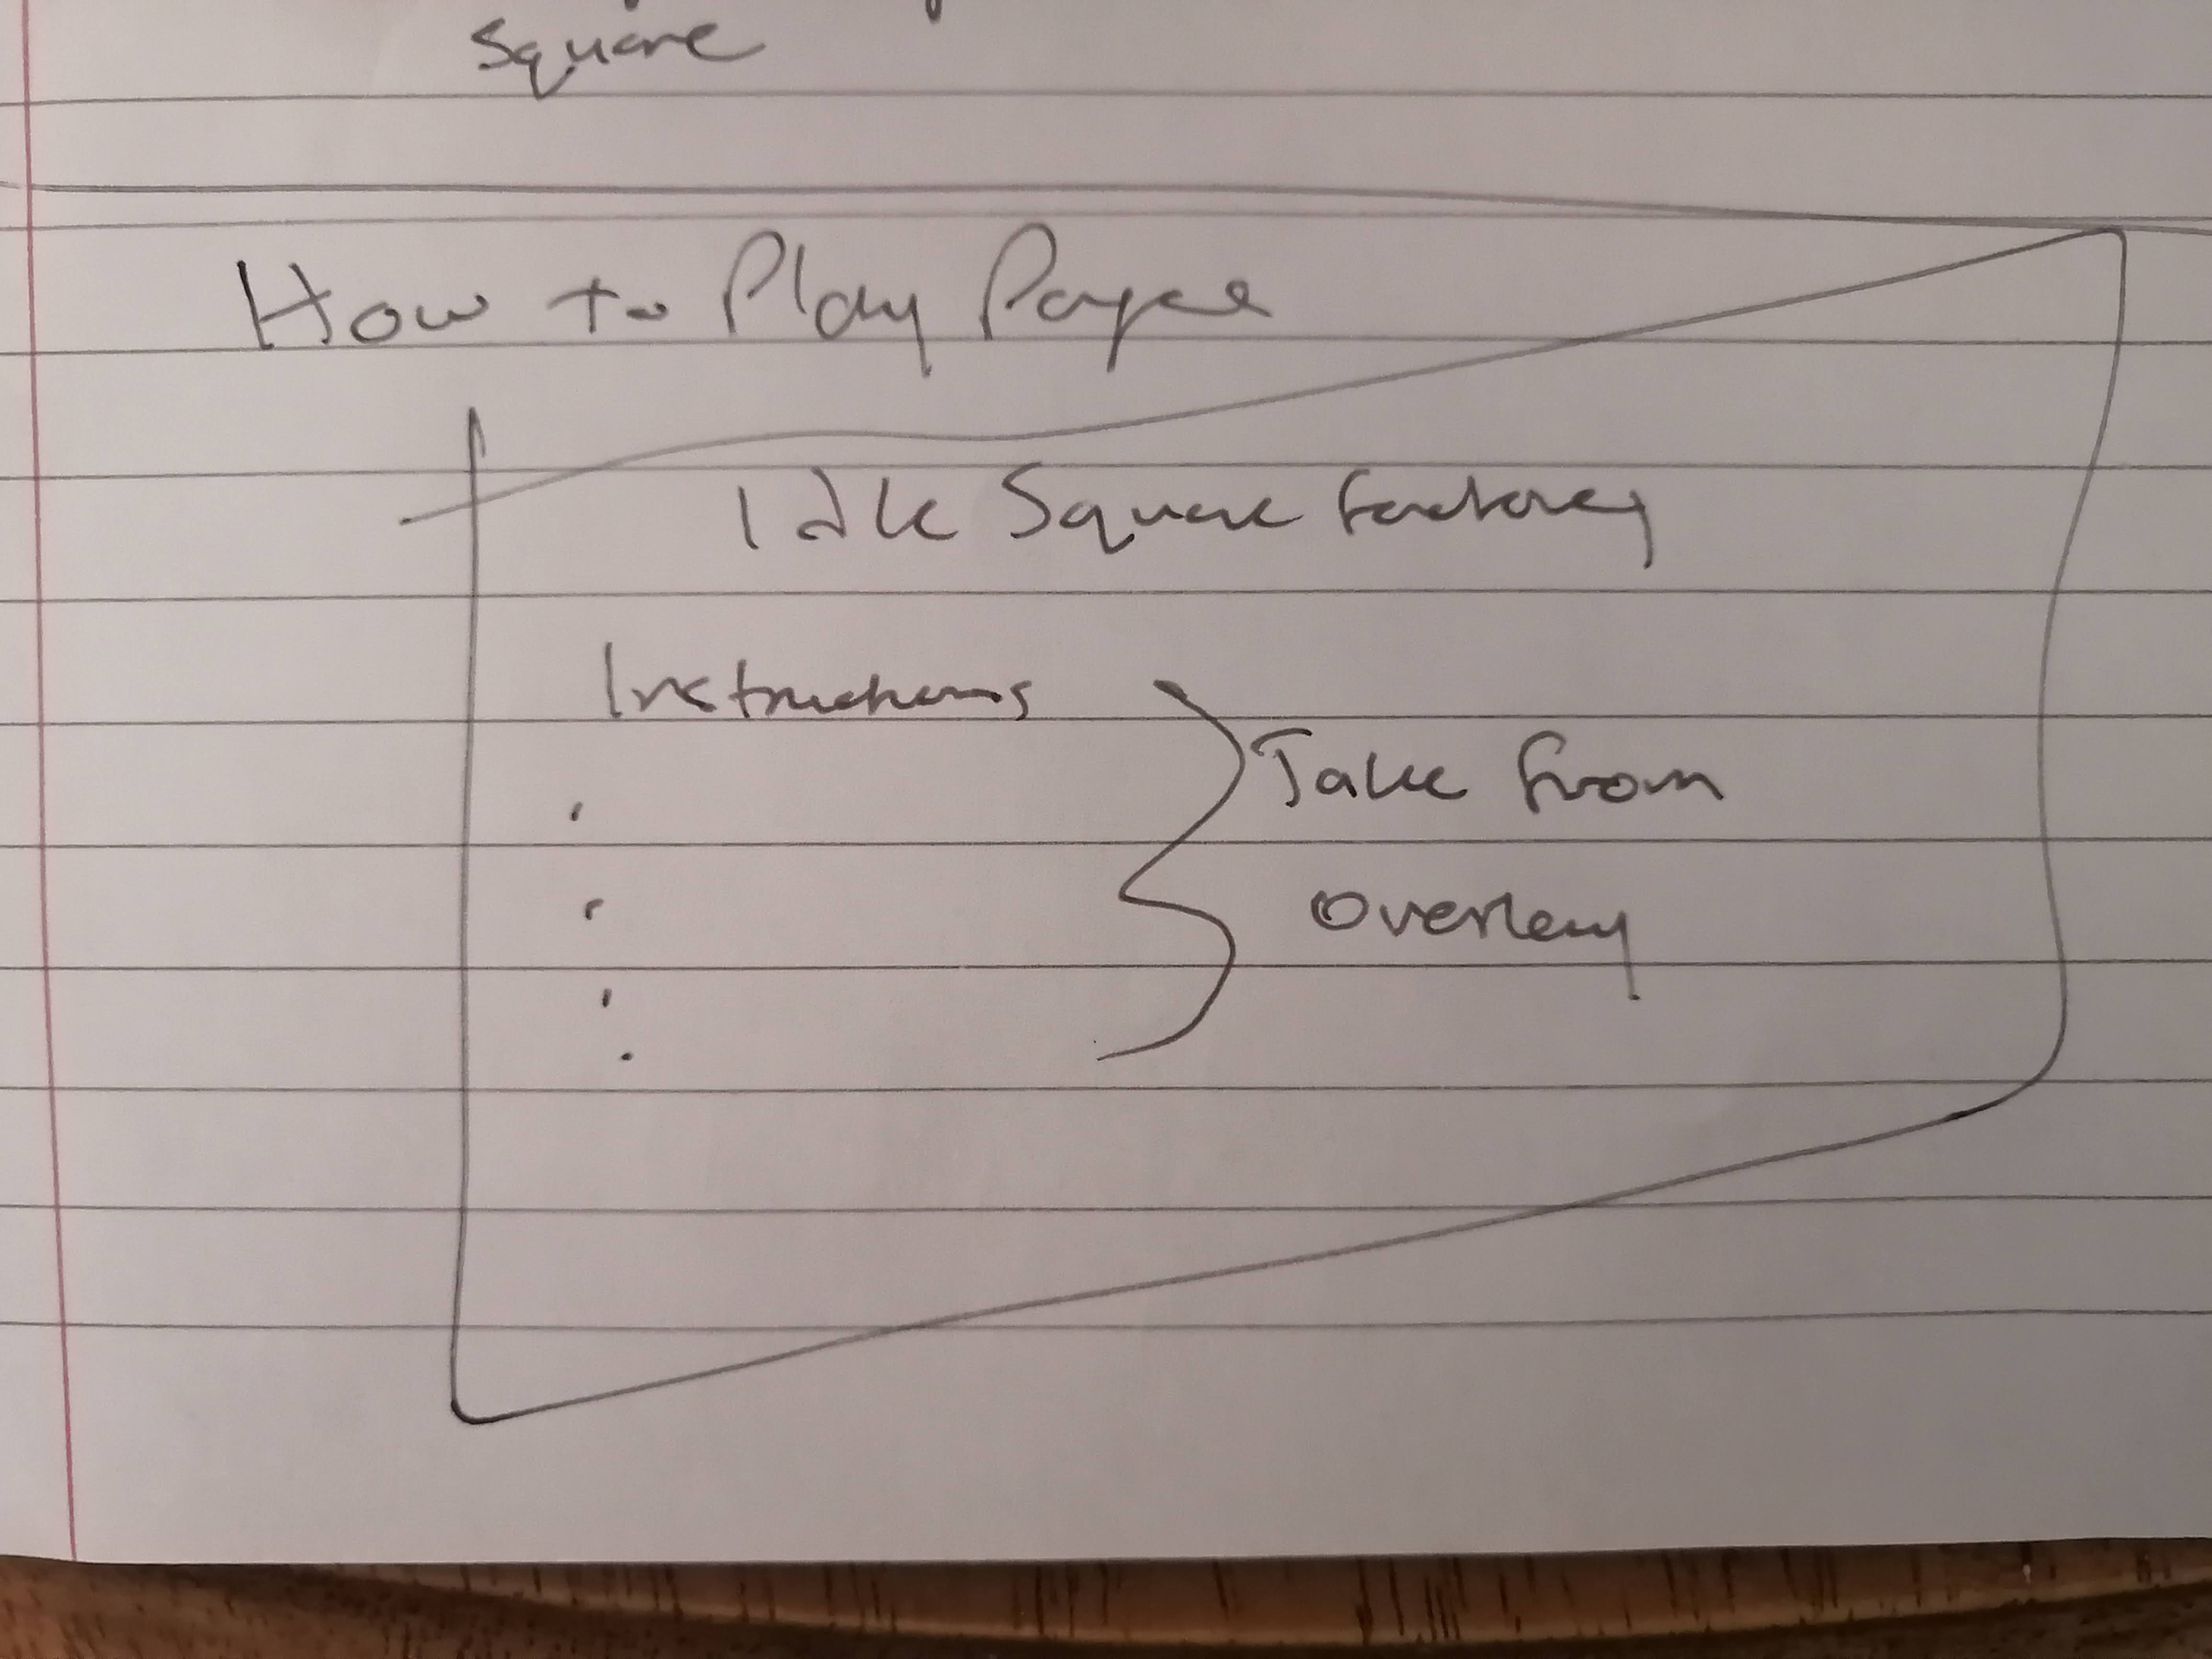 Square
How to Play Page
Idle Square Factory
Instructions
Take from
overlay